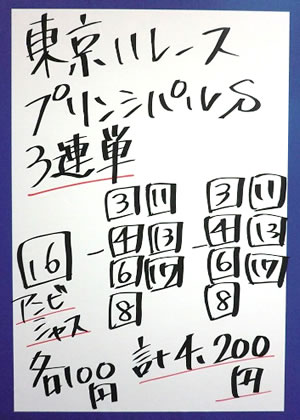 東京11レース
プリンシパルS
3連単
16
アンビ
シャス
- 3 11
4 13
6 17
8
- 3 11
4 13
6 17
8
各100円
計4,200円